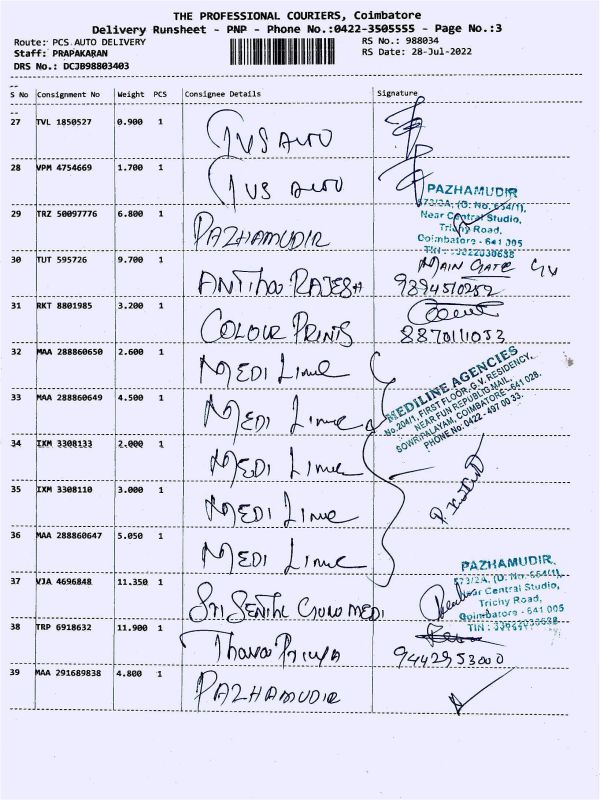 THE PROFESSIONAL COURIERS, Coimbatore
Delivery Runsheet - PNP - Phone No.:0422-3505555 - Page No.:3
Route: PCS AUTO DELIVERY RS No.: 988034
Staff: PRAPAKARAN RS Date: 28-Jul-2022
DRS No.: DCJB98803403
S No Consignment No Weight PCS Consignee Details Signature
27 TVL 1850527 0.900 1 TVS AUTO
28 VPM 4754669 1.700 1 TVS AUTO
PAZHAMUDIR
673/2A, (O. No. 654/1),
Near Central Studio,
Trichy Road,
Coimbatore - 641 005
29 TRZ 50097776 6.800 1 PAZHAMUDIR
30 TUT 595726 9.700 1 RAJESH MAIN GATE
9894510252
31 RKT 8801985 3.200 1 COLOUR PRINTS
8870111053
32 MAA 288860650 2.600 1 MEDI Line
33 MAA 288860649 4.500 1 MEDI Line
MEDILINE AGENCIES
No.204/1, FIRST FLOOR, G.V. RESIDENCY,
NEAR FUN REPUBLIC MAIL,
SOWRIPALAYAM, COIMBATORE - 641 028.
PHONE No: 0422 - 497 00 33.
34 IXM 3308133 2.000 1 MEDI Line
35 IXM 3308110 3.000 1 MEDI Line
36 MAA 288860647 5.050 1 MEDI Line
PAZHAMUDIR
673/2A, (O. No. 654/1),
Near Central Studio,
Trichy Road,
Coimbatore - 641 005
37 VJA 4696848 11.350 1 SRI SENTHIL MEDI
38 TRP 6918632 11.900 1 Priya
9442953000
39 MAA 291689838 4.800 1 PAZHAMUDIR